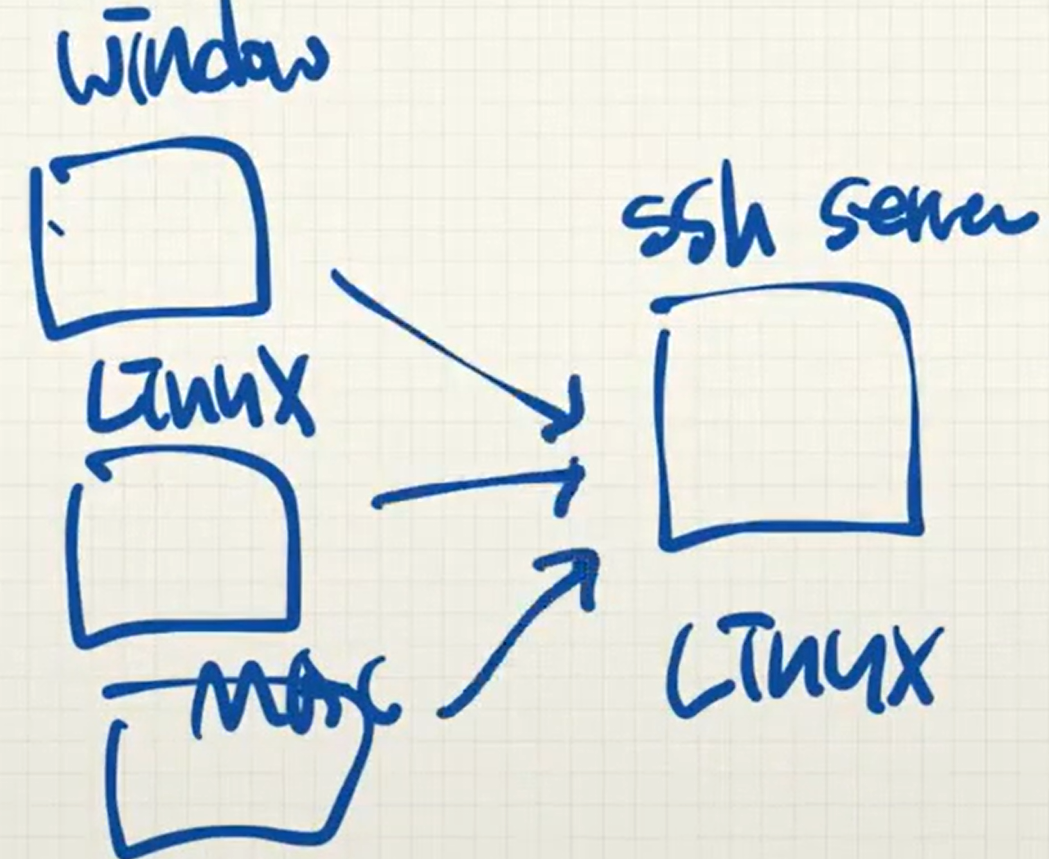 window
Linux
Mac
ssh server
Linux